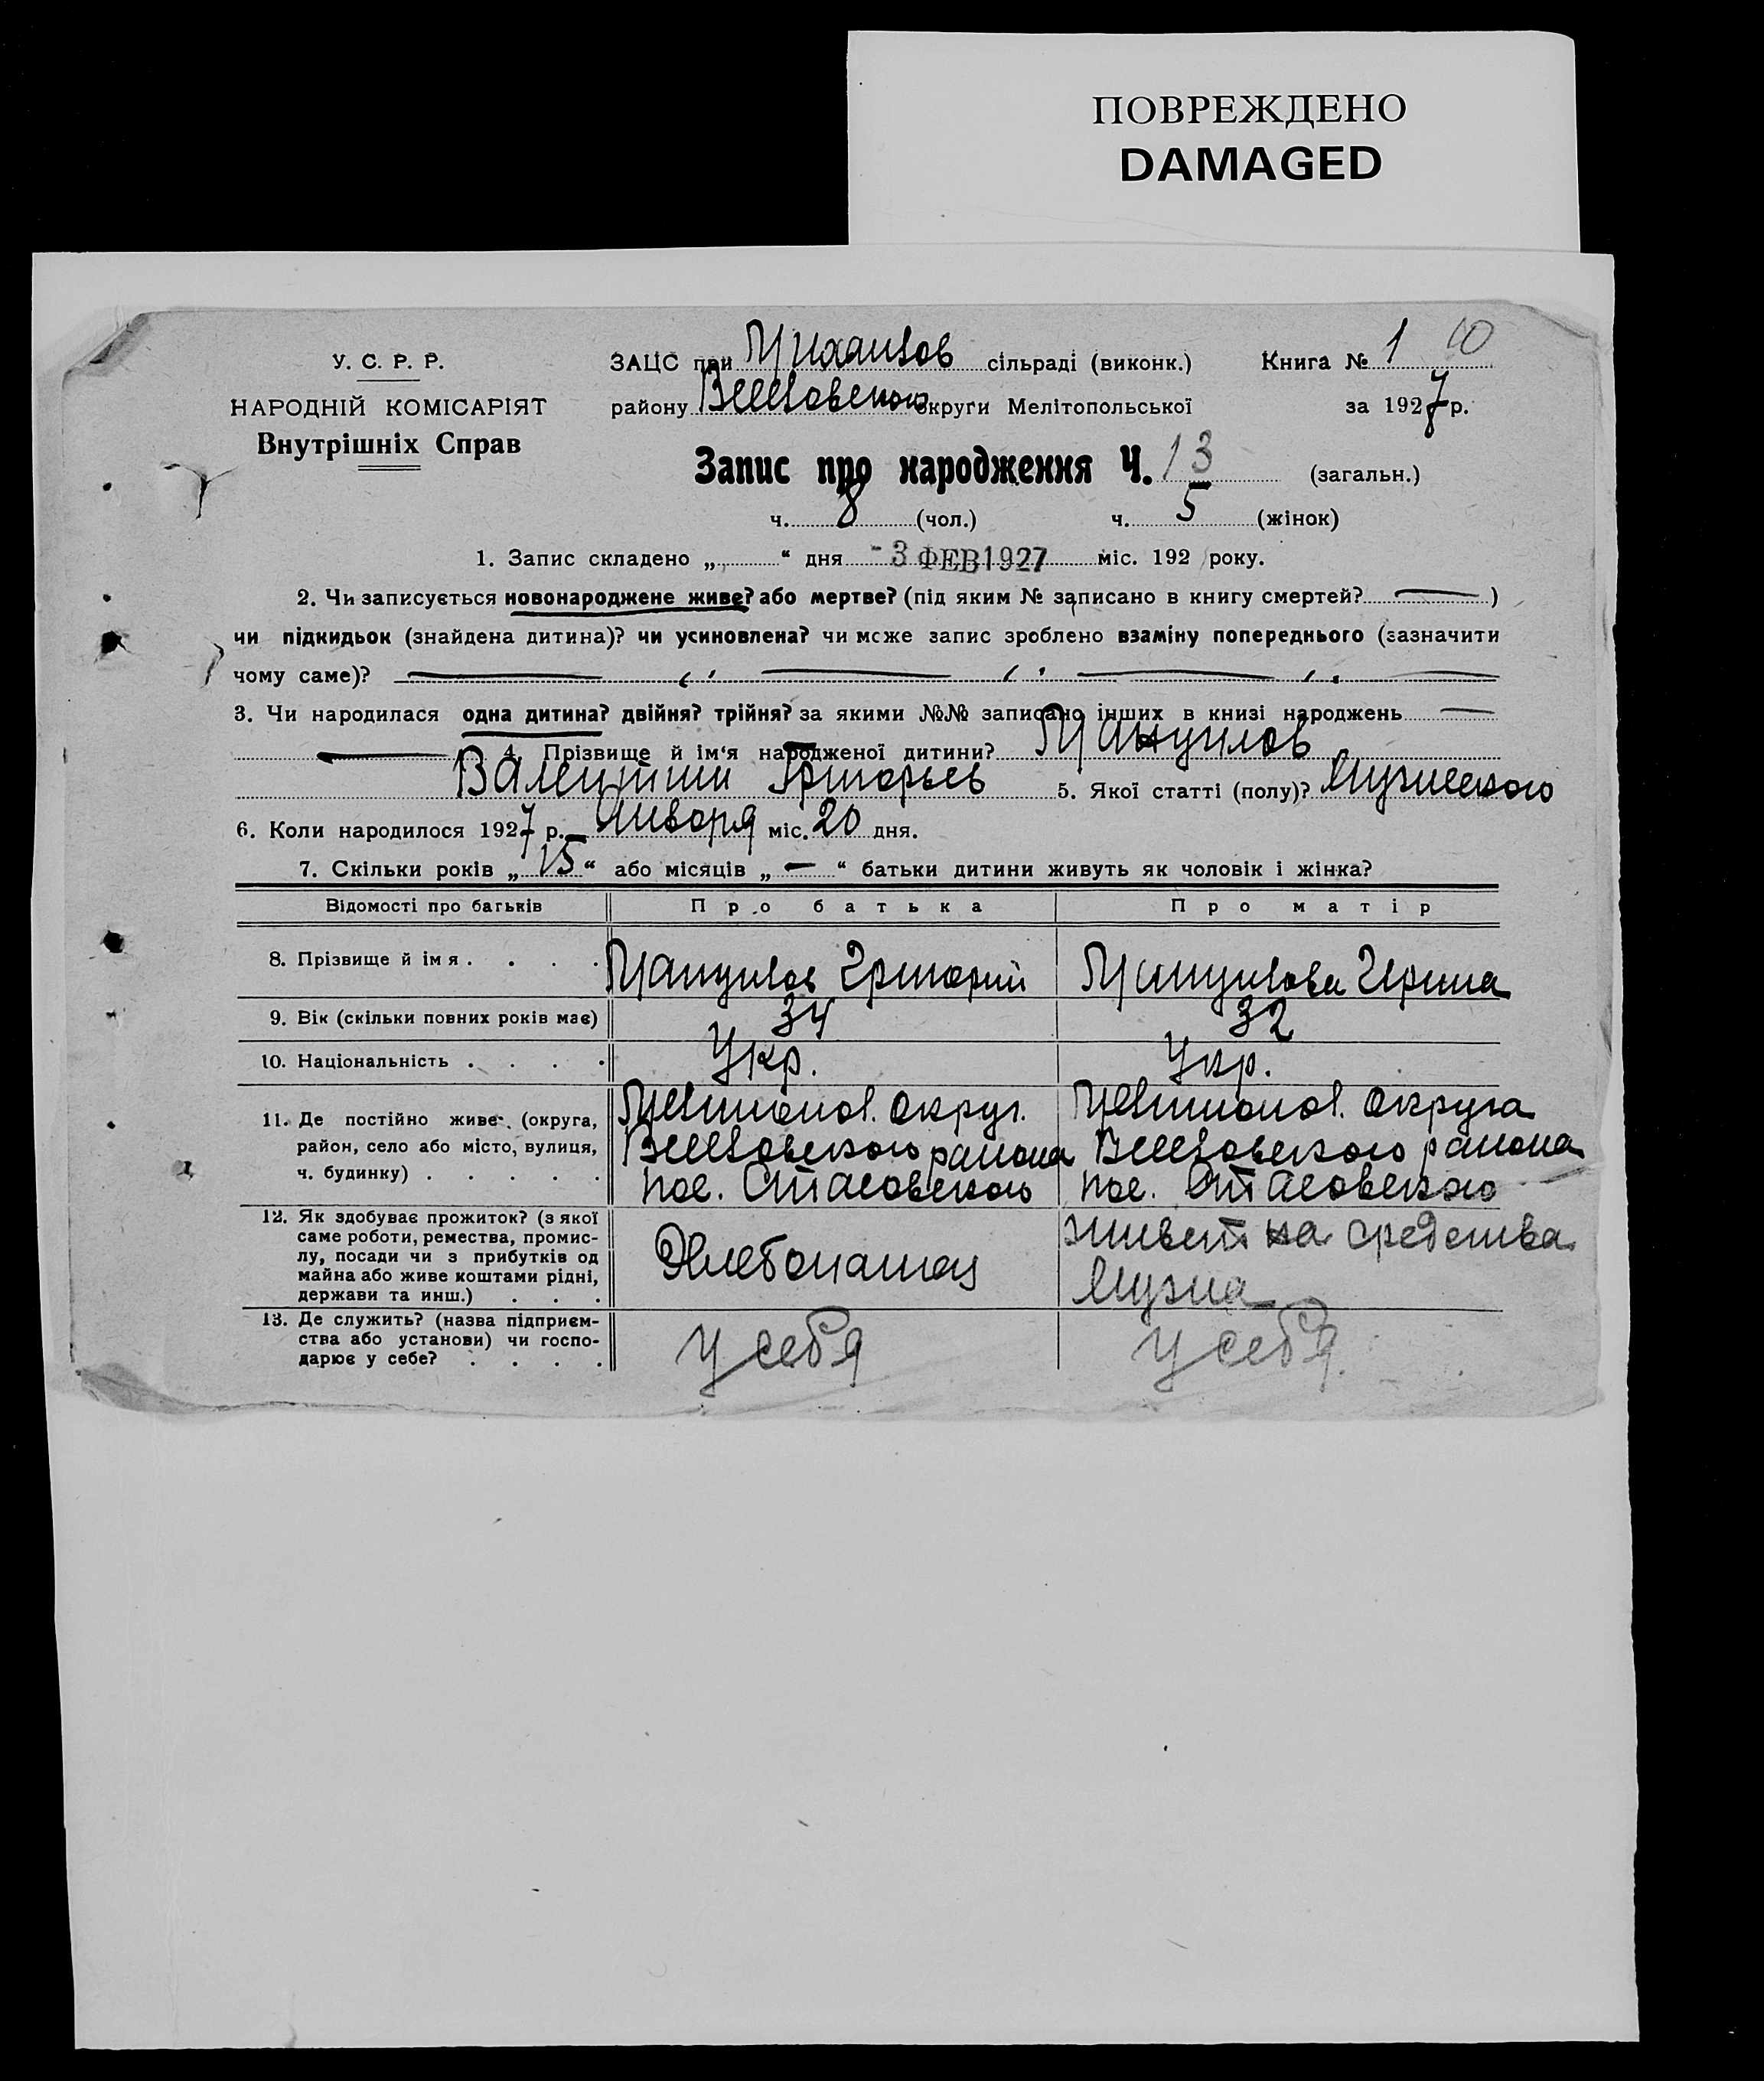 ПОВРЕЖДЕНО
DAMAGED
У. С. Р. Р.
НАРОДНІЙ КОМІСАРІЯТ
Внутрішніх Справ
ЗАЦС при Михайлов сільраді (виконк.)
району Веселовского округи Мелітопольської
Книга № 1 10
за 1927 р.
Запис про народження Ч. 13 (загальн.)
ч. 8 (чол.) ч. 5 (жінок)
1. Запис складено „ “ дня -3 ФЕВ 1927 міс. 192 року.
2. Чи записується новонароджене живе? або мертве? (під яким № записано в книгу смертей? — )
чи підкидьок (знайдена дитина)? чи усиновлена? чи може запис зроблено взаміну попереднього (зазначити
чому саме)?
3. Чи народилася одна дитина? двійня? трійня? за якими №№ записано інших в книзі народжень —
— 4. Прізвище й ім‘я народженої дитини? Мануилов
Валентин Григорьев 5. Якої статті (полу)? Мужеского
6. Коли народилося 1927 р. Января міс. 20 дня.
7. Скільки років „ 15 “ або місяців „ — “ батьки дитини живуть як чоловік і жінка?
Відомості про батьків Про батька Про матір
8. Прізвище й імя . . . . Мануилов Григорий Мануилова Ирина
9. Вік (скільки повних років має) 34 32
10. Національність . . . . Укр. Укр.
11. Де постійно живе (округа,
район, село або місто, вулиця,
ч. будинку) . . . . .
Мелитопол. округ.
Веселовского района
пос. Стасовского
Мелитопол. округа
Веселовского района
пос. Стасовского
12. Як здобуває прожиток? (з якої
саме роботи, ремества, промис-
лу, посади чи з прибутків од
майна або живе коштами рідні,
держави та инш.) . . .
Хлебопашец
живет на средства
мужа
13. Де служить? (назва підприєм-
ства або установи) чи госпо-
дарює у себе? . . . .
У себя
У себя.